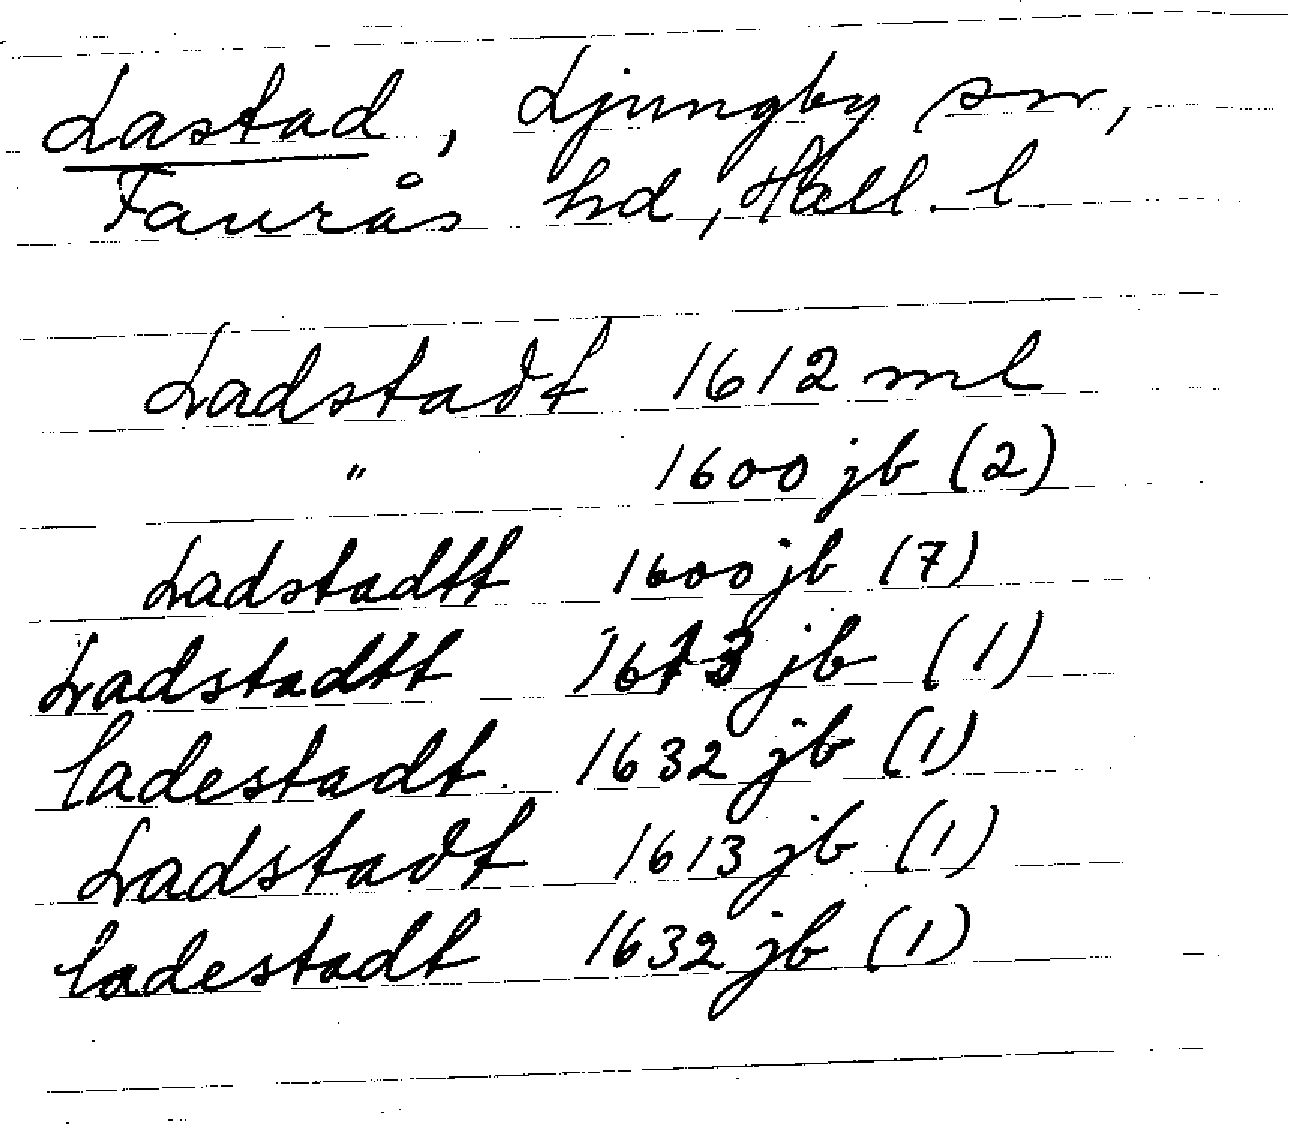 Lastad, Ljungby sn,
Faurås hd, Hall. l.
Ladstadt 1612 ml
" 1600 jb (2)
Ladstadtt 1600 jb (7)
Ladstadtt 1613 jb (1)
Ladestadt. 1632 jb (1)
Ladstadt 1613 jb (1)
Ladestadt 1632 jb (1)